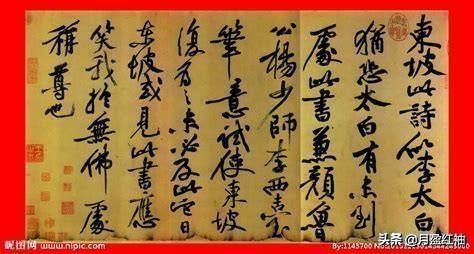 東坡此詩似李太白
猶恐太白有未到
處此書兼顏魯
公楊少師李西臺
筆意試使東坡
復為之未必及此它日
東坡或見此書應
笑我於無佛處
稱尊也
昵图网 www.nipic.com
By:1143700
头条 @月盈红袖